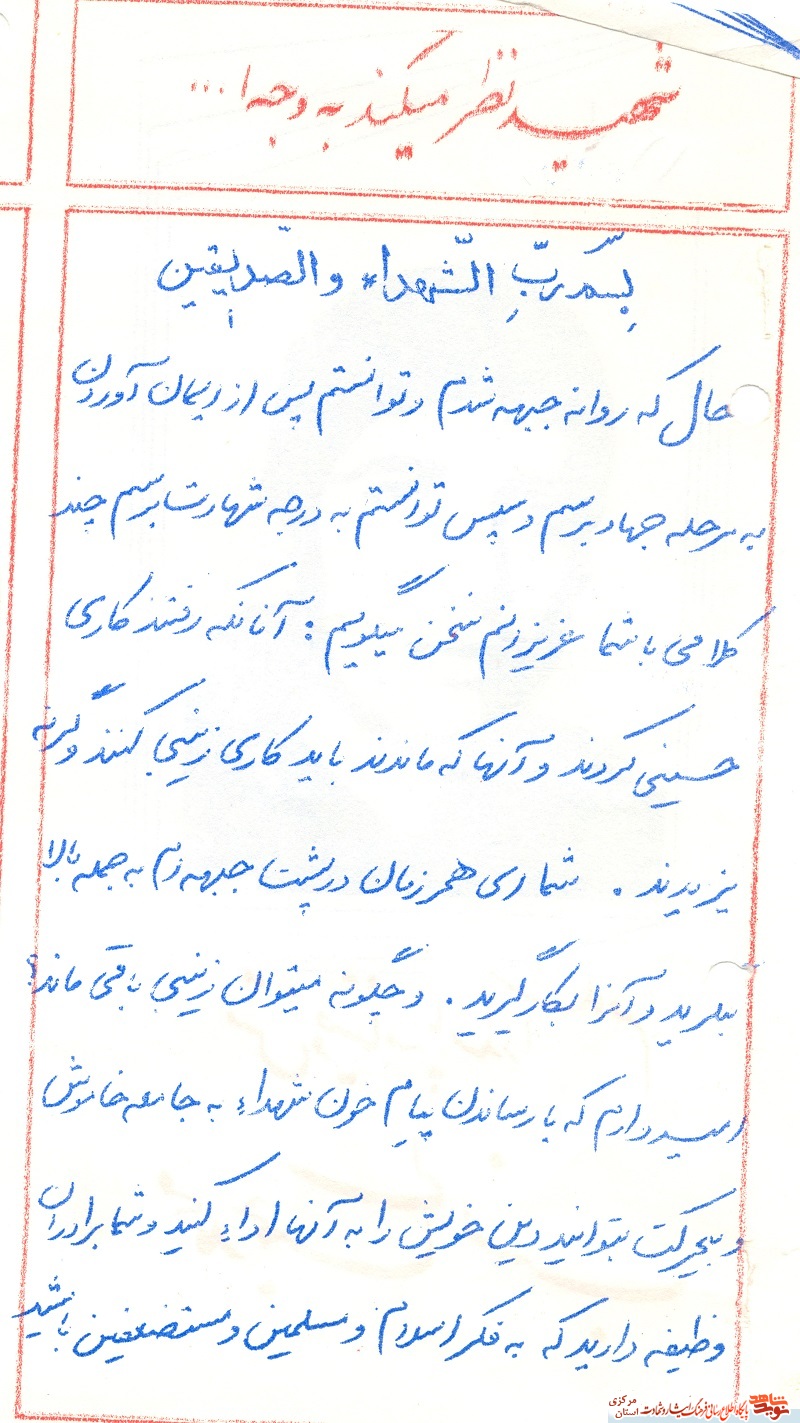 شهید نظر میکند به وجه ا...
بِسمِ ربِّ الشّهداء والصّدیقین
حال که روانه جبهه شدم و توانستم پس از ایمان آوردن
به مرحله جهاد برسم و سپس توانستم به درجه شهادت برسم چند
کلامی با شما عزیزانم سخن میگویم : آنانکه رفتند کاری
حسینی کردند و آنها که ماندند باید کاری زینبی کنند وگرنه
یزیدیند . شما ای همرزمان در پشت جبهه ام به جمله بالا
بنگرید و آنرا بکار گیرید . و چگونه میتوان زینبی باقی ماند؟
امیدوارم که با رساندن پیام خون شهداء به جامعه خاموش
و بیحرکت بتوانید دین خویش را به آنها اداء کنید و شما برادران
وظیفه دارید که به فکر اسلام و مسلمین و مستضعفین باشید
نوید شاهد
پایگاه اطلاع رسانی فرهنگ ایثار و شهادت استان مرکزی